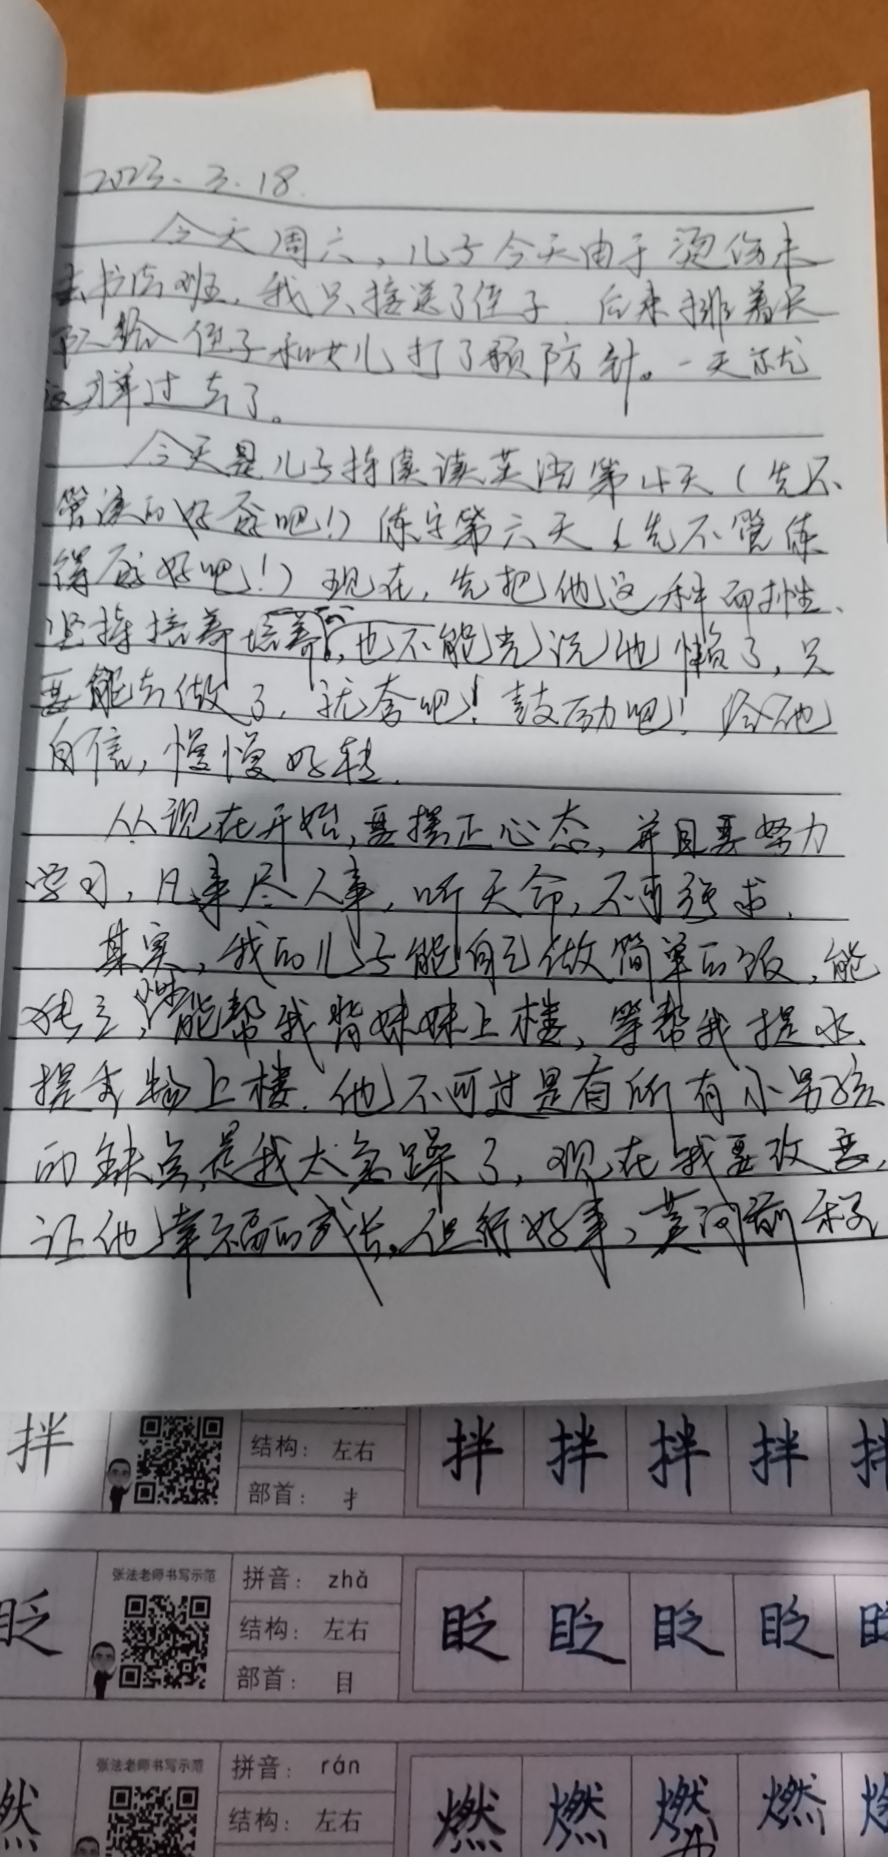 2023.3.18
今天周六，儿子今天由于烫伤未
去书法班，我只接送了侄子，后来排着长
队给侄子和女儿打了预防针。一天就
这样过去了。
今天是儿子持续读英语第4天（先不
管读的好否吧！）练字第六天（先不管练
得否好吧！）现在，先把他这种耐性、
坚持培养培养，也不能光说他懒了，只
要能去做了，就夸吧！鼓励吧！给他
自信，慢慢好转．
从现在开始，要摆正心态，并且要努力
学习，凡事尽人事，听天命，不可强求．
其实，我的儿子能自己做简单的饭，能
独立，能帮我背妹妹上楼，等帮我提水、
提重物上楼．他不可过是有所有小男孩
的缺点，是我太急躁了，现在我要改变，
让他幸福的成长。但行好事，莫问前程
拌
结构： 左右
部首： 扌
拌 拌 拌 拌 拌
眨
张法老师书写示范
拼音： zhǎ
结构： 左右
部首： 目
眨 眨 眨 眨 眨
燃
张法老师书写示范
拼音： rán
结构： 左右
燃 燃 燃 燃 燃